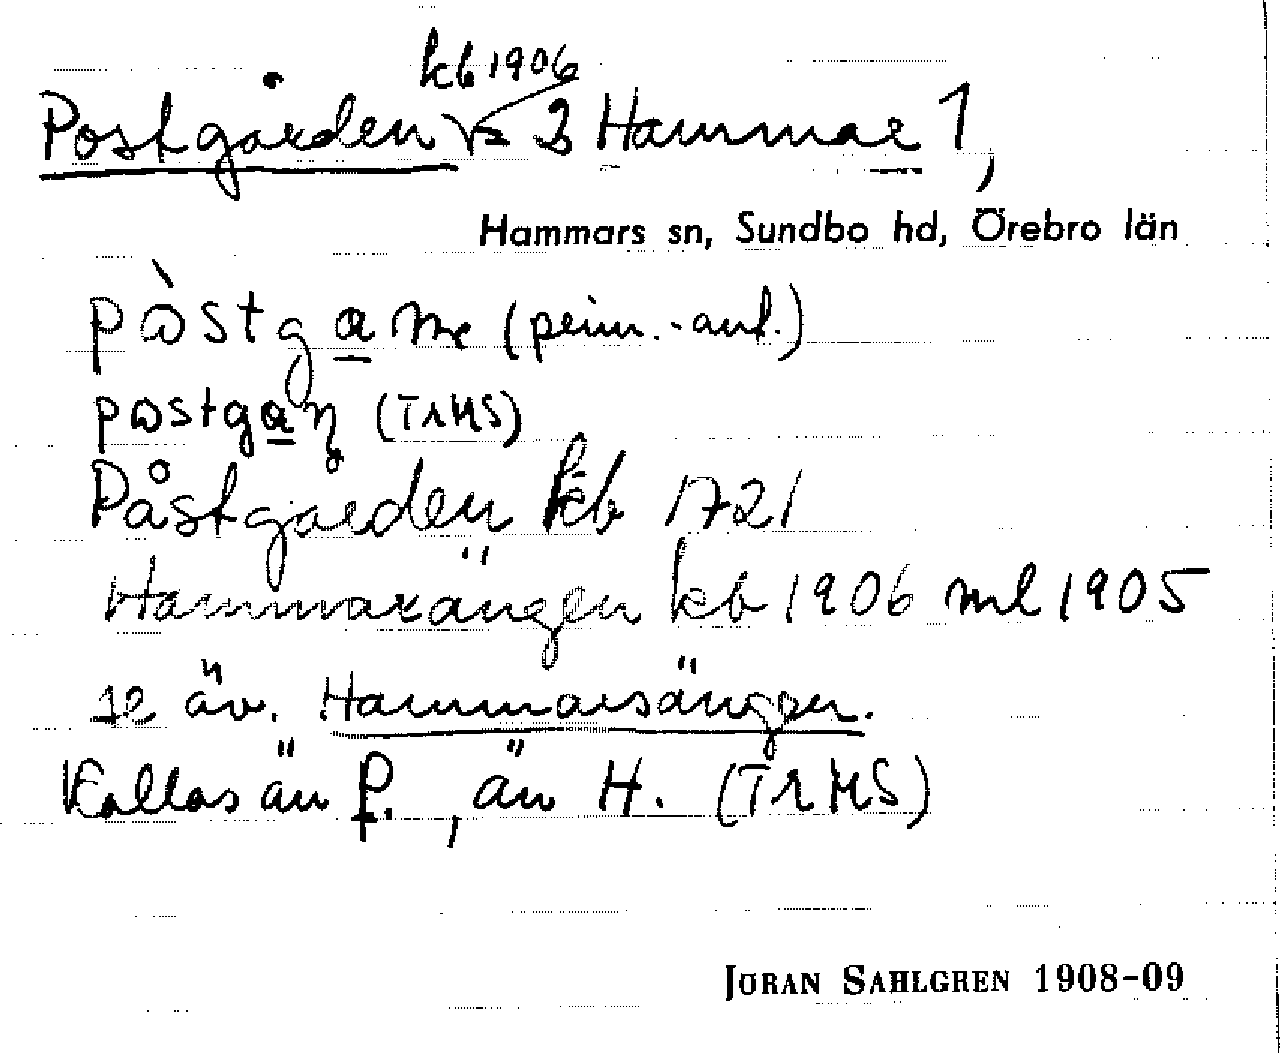 kb 1906
Postgården 3 Hammar 1,
Hammars sn, Sundbo hd, Örebro län
(prim.-ant.)
(TRHS)
Påstgården kb 1721
Hammarängen kb 1906 ml 1905
se äv. Hammarsängen.
Kallas än P., än H. (TRHS)
JÖRAN SAHLGREN 1908-09